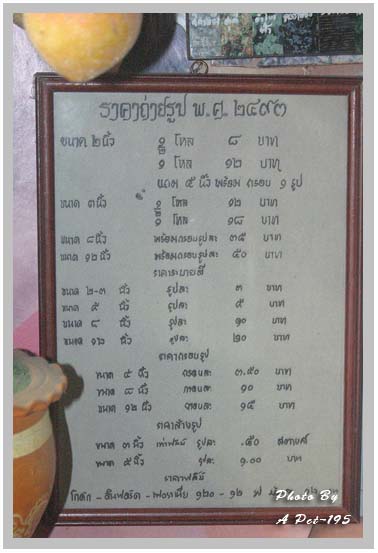 ราคาถ่ายรูป พ.ศ. ๒๔๙๓
ขนาด ๒ นิ้ว ½ โหล ๘ บาท
๑ โหล ๑๒ บาท
แถม ๕ นิ้ว พร้อม กรอบ ๑ รูป
ขนาด ๓ นิ้ว ½ โหล ๑๒ บาท
๑ โหล ๑๘ บาท
ขนาด ๘ นิ้ว พร้อมกรอบรูปละ ๓๕ บาท
ขนาด ๑๒ นิ้ว พร้อมกรอบรูปละ ๕๐ บาท
ราคาระบายสี
ขนาด ๒-๓ นิ้ว รูปละ ๓ บาท
ขนาด ๕ นิ้ว รูปละ ๕ บาท
ขนาด ๘ นิ้ว รูปละ ๑๐ บาท
ขนาด ๑๒ นิ้ว รูปละ ๒๐ บาท
ราคากรอบรูป
ขนาด ๕ นิ้ว กรอบละ ๓.๕๐ บาท
ขนาด ๘ นิ้ว กรอบละ ๑๐ บาท
ขนาด ๑๒ นิ้ว กรอบละ ๑๕ บาท
ราคาล้างรูป
ขนาด ๓ นิ้ว เท่าฟิล์ม รูปละ .๕๐ สตางค์
ขนาด ๕ นิ้ว รูปละ ๑.๐๐ บาท
ราคาฟิล์ม
โกดัก - อิลฟอร์ด - เฟอราเนีย ๑๒๐ - ๑๒
Photo By
A Pot-195